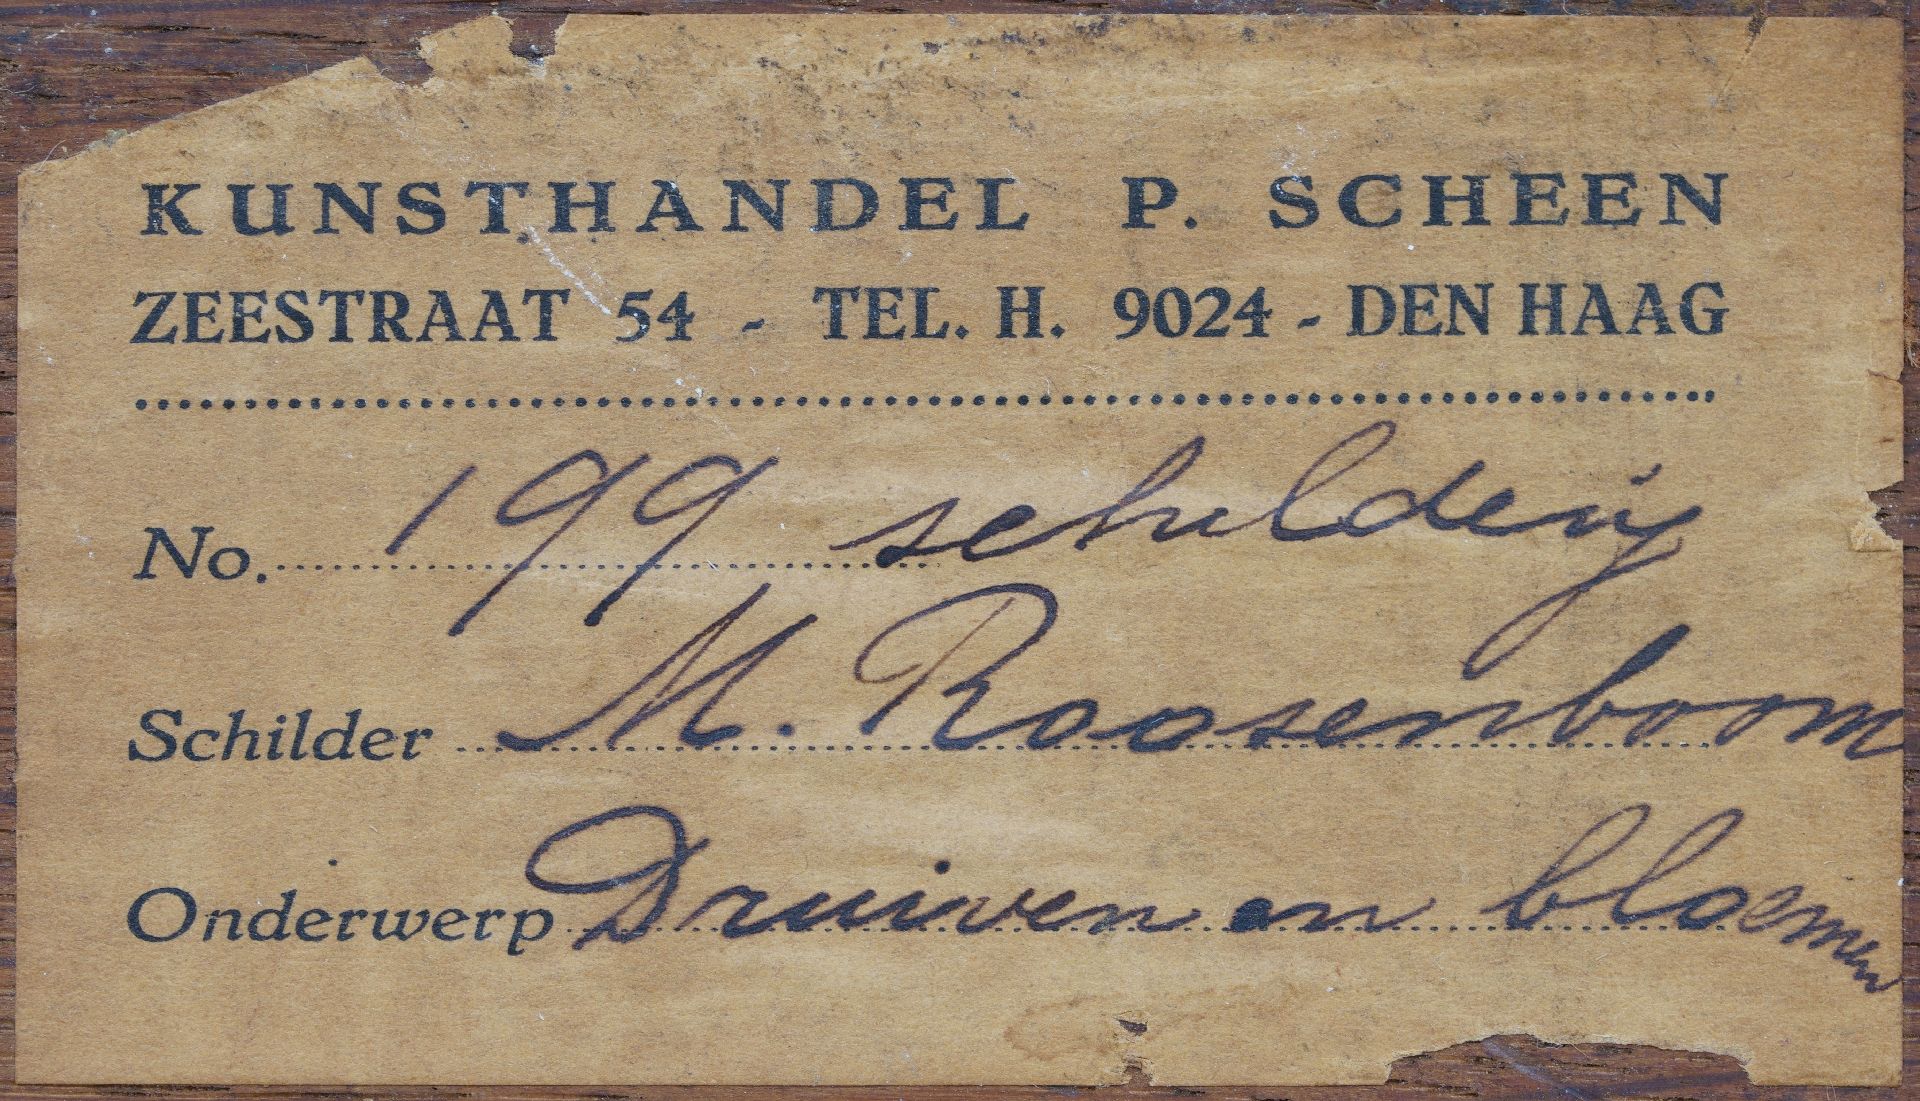 KUNSTHANDEL P. SCHEEN
ZEESTRAAT 54 - TEL. H. 9024 - DEN HAAG
No. 199 schilderij
Schilder M. Roosenboom
Onderwerp Druiven en bloemen